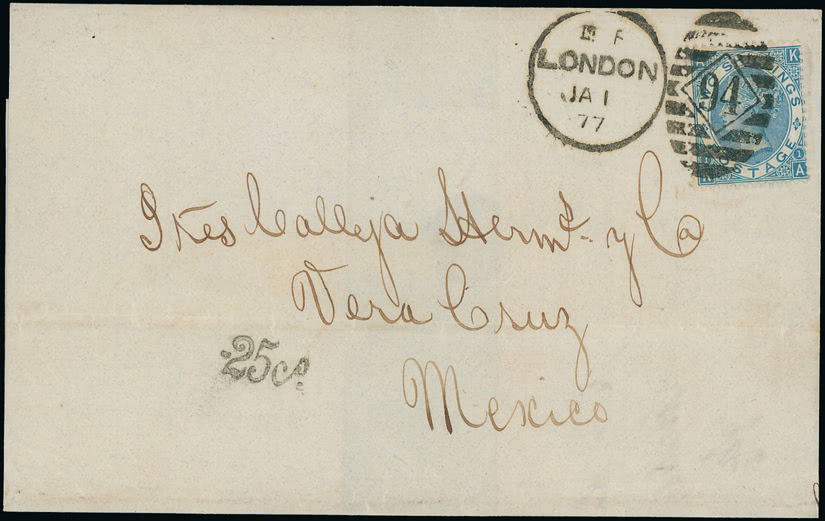 E F
LONDON
JA 1
77
94
K
TWO SHILLINGS
POSTAGE
A
Sres Calleja Herms. y Ca
Vera Cruz
25cs
Mexico